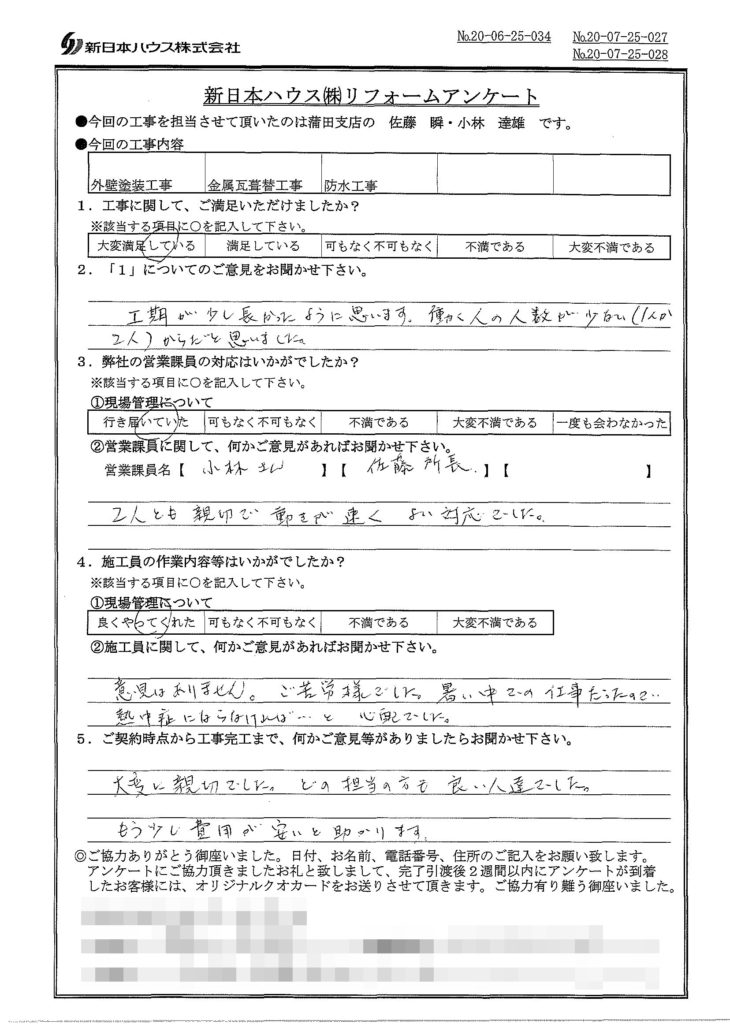 新日本ハウス株式会社
№20-06-25-034 №20-07-25-027
№20-07-25-028
新日本ハウス㈱リフォームアンケート
●今回の工事を担当させて頂いたのは蒲田支店の 佐藤 瞬・小林 達雄 です。
●今回の工事内容
外壁塗装工事 金属瓦葺替工事 防水工事
1．工事に関して、ご満足いただけましたか？
※該当する項目に○を記入して下さい。
大変満足している 満足している 可もなく不可もなく 不満である 大変不満である
2．「1」についてのご意見をお聞かせ下さい。
工期が少し長かったように思います。働く人の人数が少ない（1人か
2人）からだと思いました。
3．弊社の営業課員の対応はいかがでしたか？
※該当する項目に○を記入して下さい。
①現場管理について
行き届いていた 可もなく不可もなく 不満である 大変不満である 一度も会わなかった
②営業課員に関して、何かご意見があればお聞かせ下さい。
営業課員名【 小林さん 】【 佐藤所長. 】【 】
2人とも親切で動きが速くよい対応でした。
4．施工員の作業内容等はいかがでしたか？
※該当する項目に○を記入して下さい。
①現場管理について
良くやってくれた 可もなく不可もなく 不満である 大変不満である
②施工員に関して、何かご意見があればお聞かせ下さい。
意見はありません。ご苦労様でした。暑い中での仕事だったので…
熱中症にならなければ…と心配でした。
5．ご契約時点から工事完工まで、何かご意見等がありましたらお聞かせ下さい。
大変に親切でした。どの担当の方も良い人達でした。
もう少し費用が安いと助かります。
◎ご協力ありがとう御座いました。日付、お名前、電話番号、住所のご記入をお願い致します。
アンケートにご協力頂きましたお礼と致しまして、完了引渡後2週間以内にアンケートが到着
したお客様には、オリジナルクオカードをお送りさせて頂きます。ご協力有り難う御座いました。